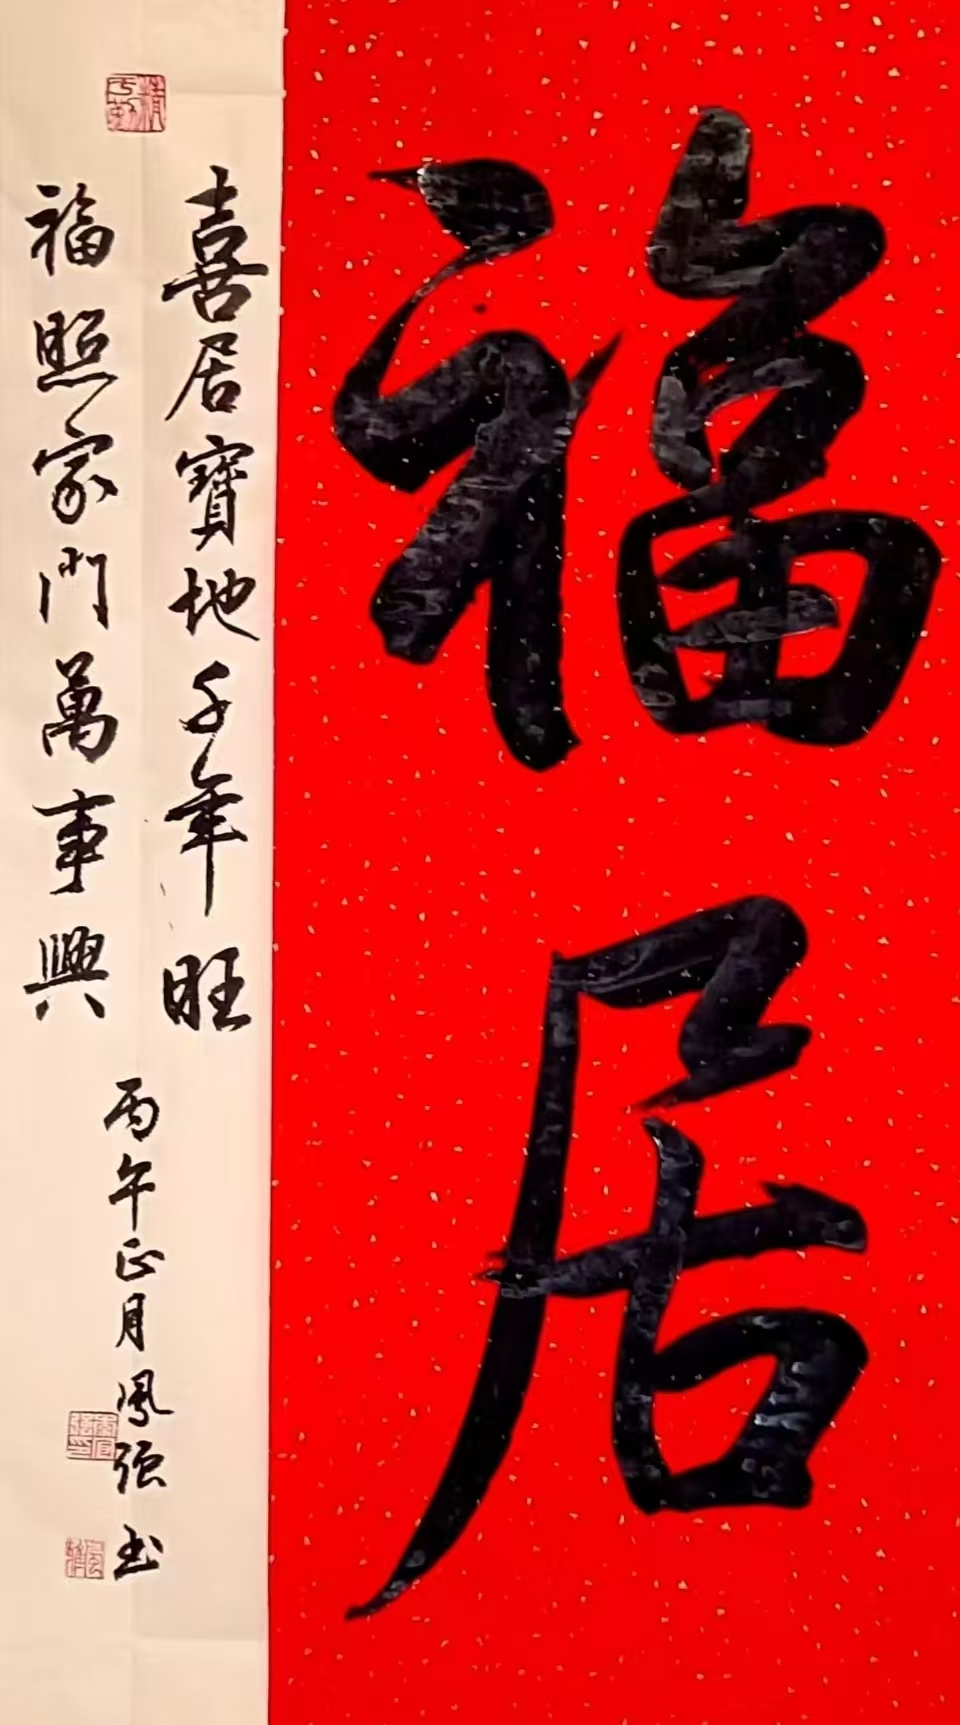 福居
喜居寶地千年旺
福照家門萬事興
丙午正月鳳強书